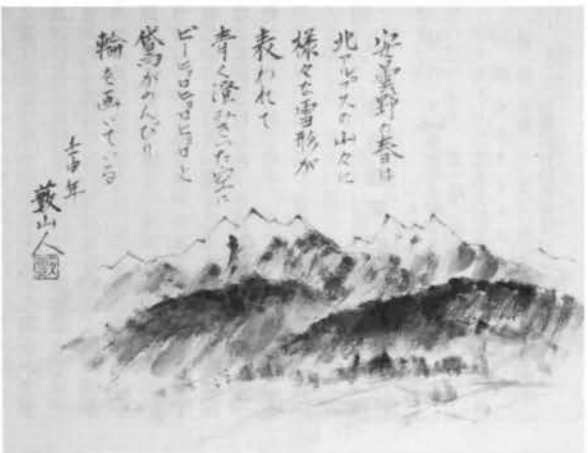 安曇野の春は
北アルプスの山々に
様々な雪形が
表われて
青く澄みきった空に
ピーヒョロヒョロヒョロと
鳶がのんびり
輪を画いている
壬申年
藪山人